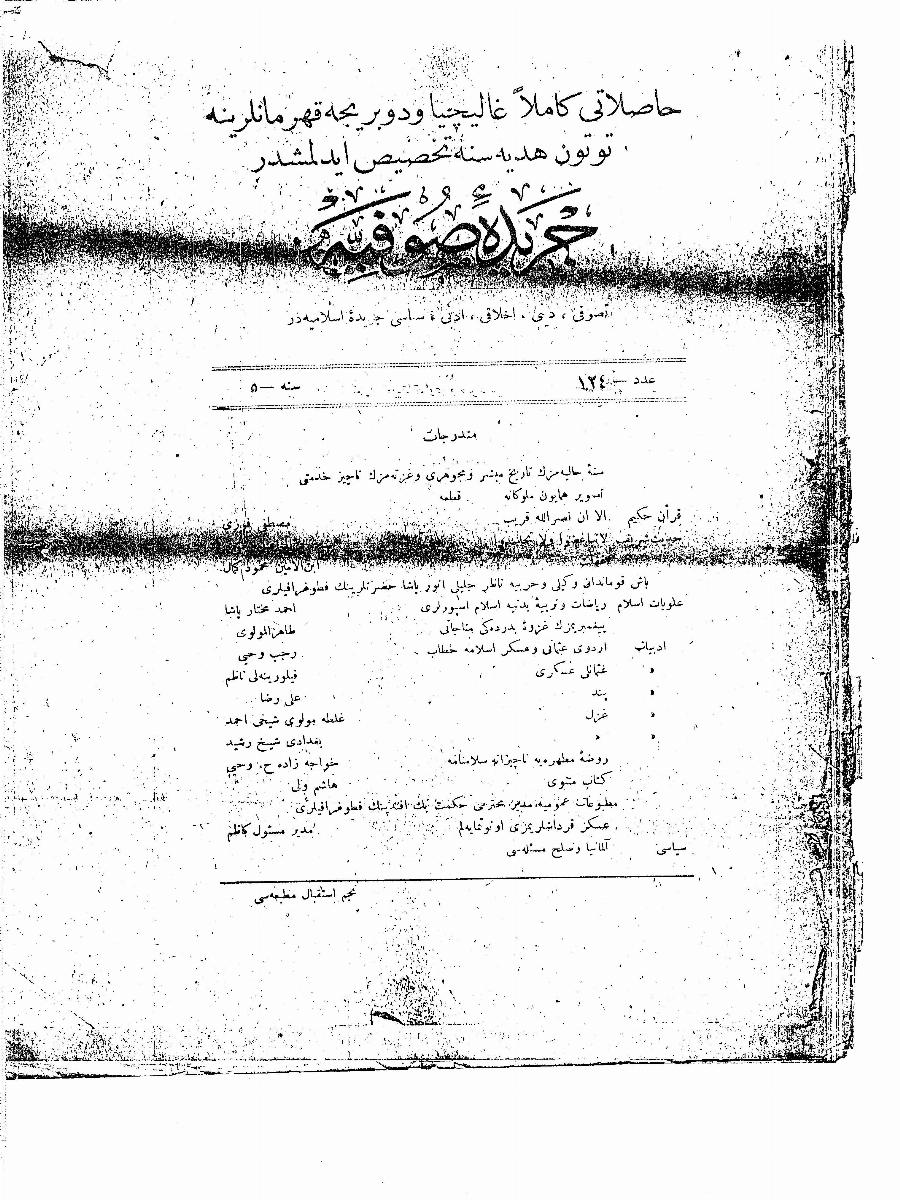 حاصلاتی كاملاً غالیچیا و دوبریجه قهرمانلرینه
توتون هدیه سنه تخصیص ایدلمشدر
جریدهٔ صوفیه
تصوفی ، دینی ، اخلاقی ، ادبی ، سیاسی جریدهٔ اسلامیه در
عدد — ١٢٤ سنه — ٥
مندرجات
سنهٔ حالیه مزك تاریخ مبشر و مجوهری وغزته مزك ناچیز خدمتی
تصویر همایون ملوكانه قطعه
قرآن حكیم الا ان نصر الله قریب مصطفی فوزی
حدیث شریف لاتباغضوا ولا
ابن الامین محمود كمال
باش قوماندان وكیلی وحربیه ناظر جلیلی انور پاشا حضرتلرینك فطوغرافیلری
علویات اسلام ریاضات و تربیهٔ بدنیه اسلام اسپورلری احمد مختار پاشا
پیغمبریمزك غزوهٔ بدرده كی مناجاتی طاهر المولوی
ادبیات اردوی عثمانی وعسكر اسلامه خطاب رجب وحیی
» عثمانلی عسكری فیلورینه لی ناظم
» پند علی رضا
» غزل غلطه مولوی شیخی احمد
» » بغدادی شیخ رشید
روضهٔ مطهره یه ناچیزانه سلامنامه خواجه زاده ح. وحیی
كتاب مثنوی هاشم ولی
مطبوعات عمومیه مدیر محترمی حكمت بك افندینك فطوغرافیلری
عسكر قرداشلریمزی اونوتمایه لم مدیر مسئول كاظم
سیاسی آلمانیا وصلح مسئله سی
نجم استقبال مطبعه سی